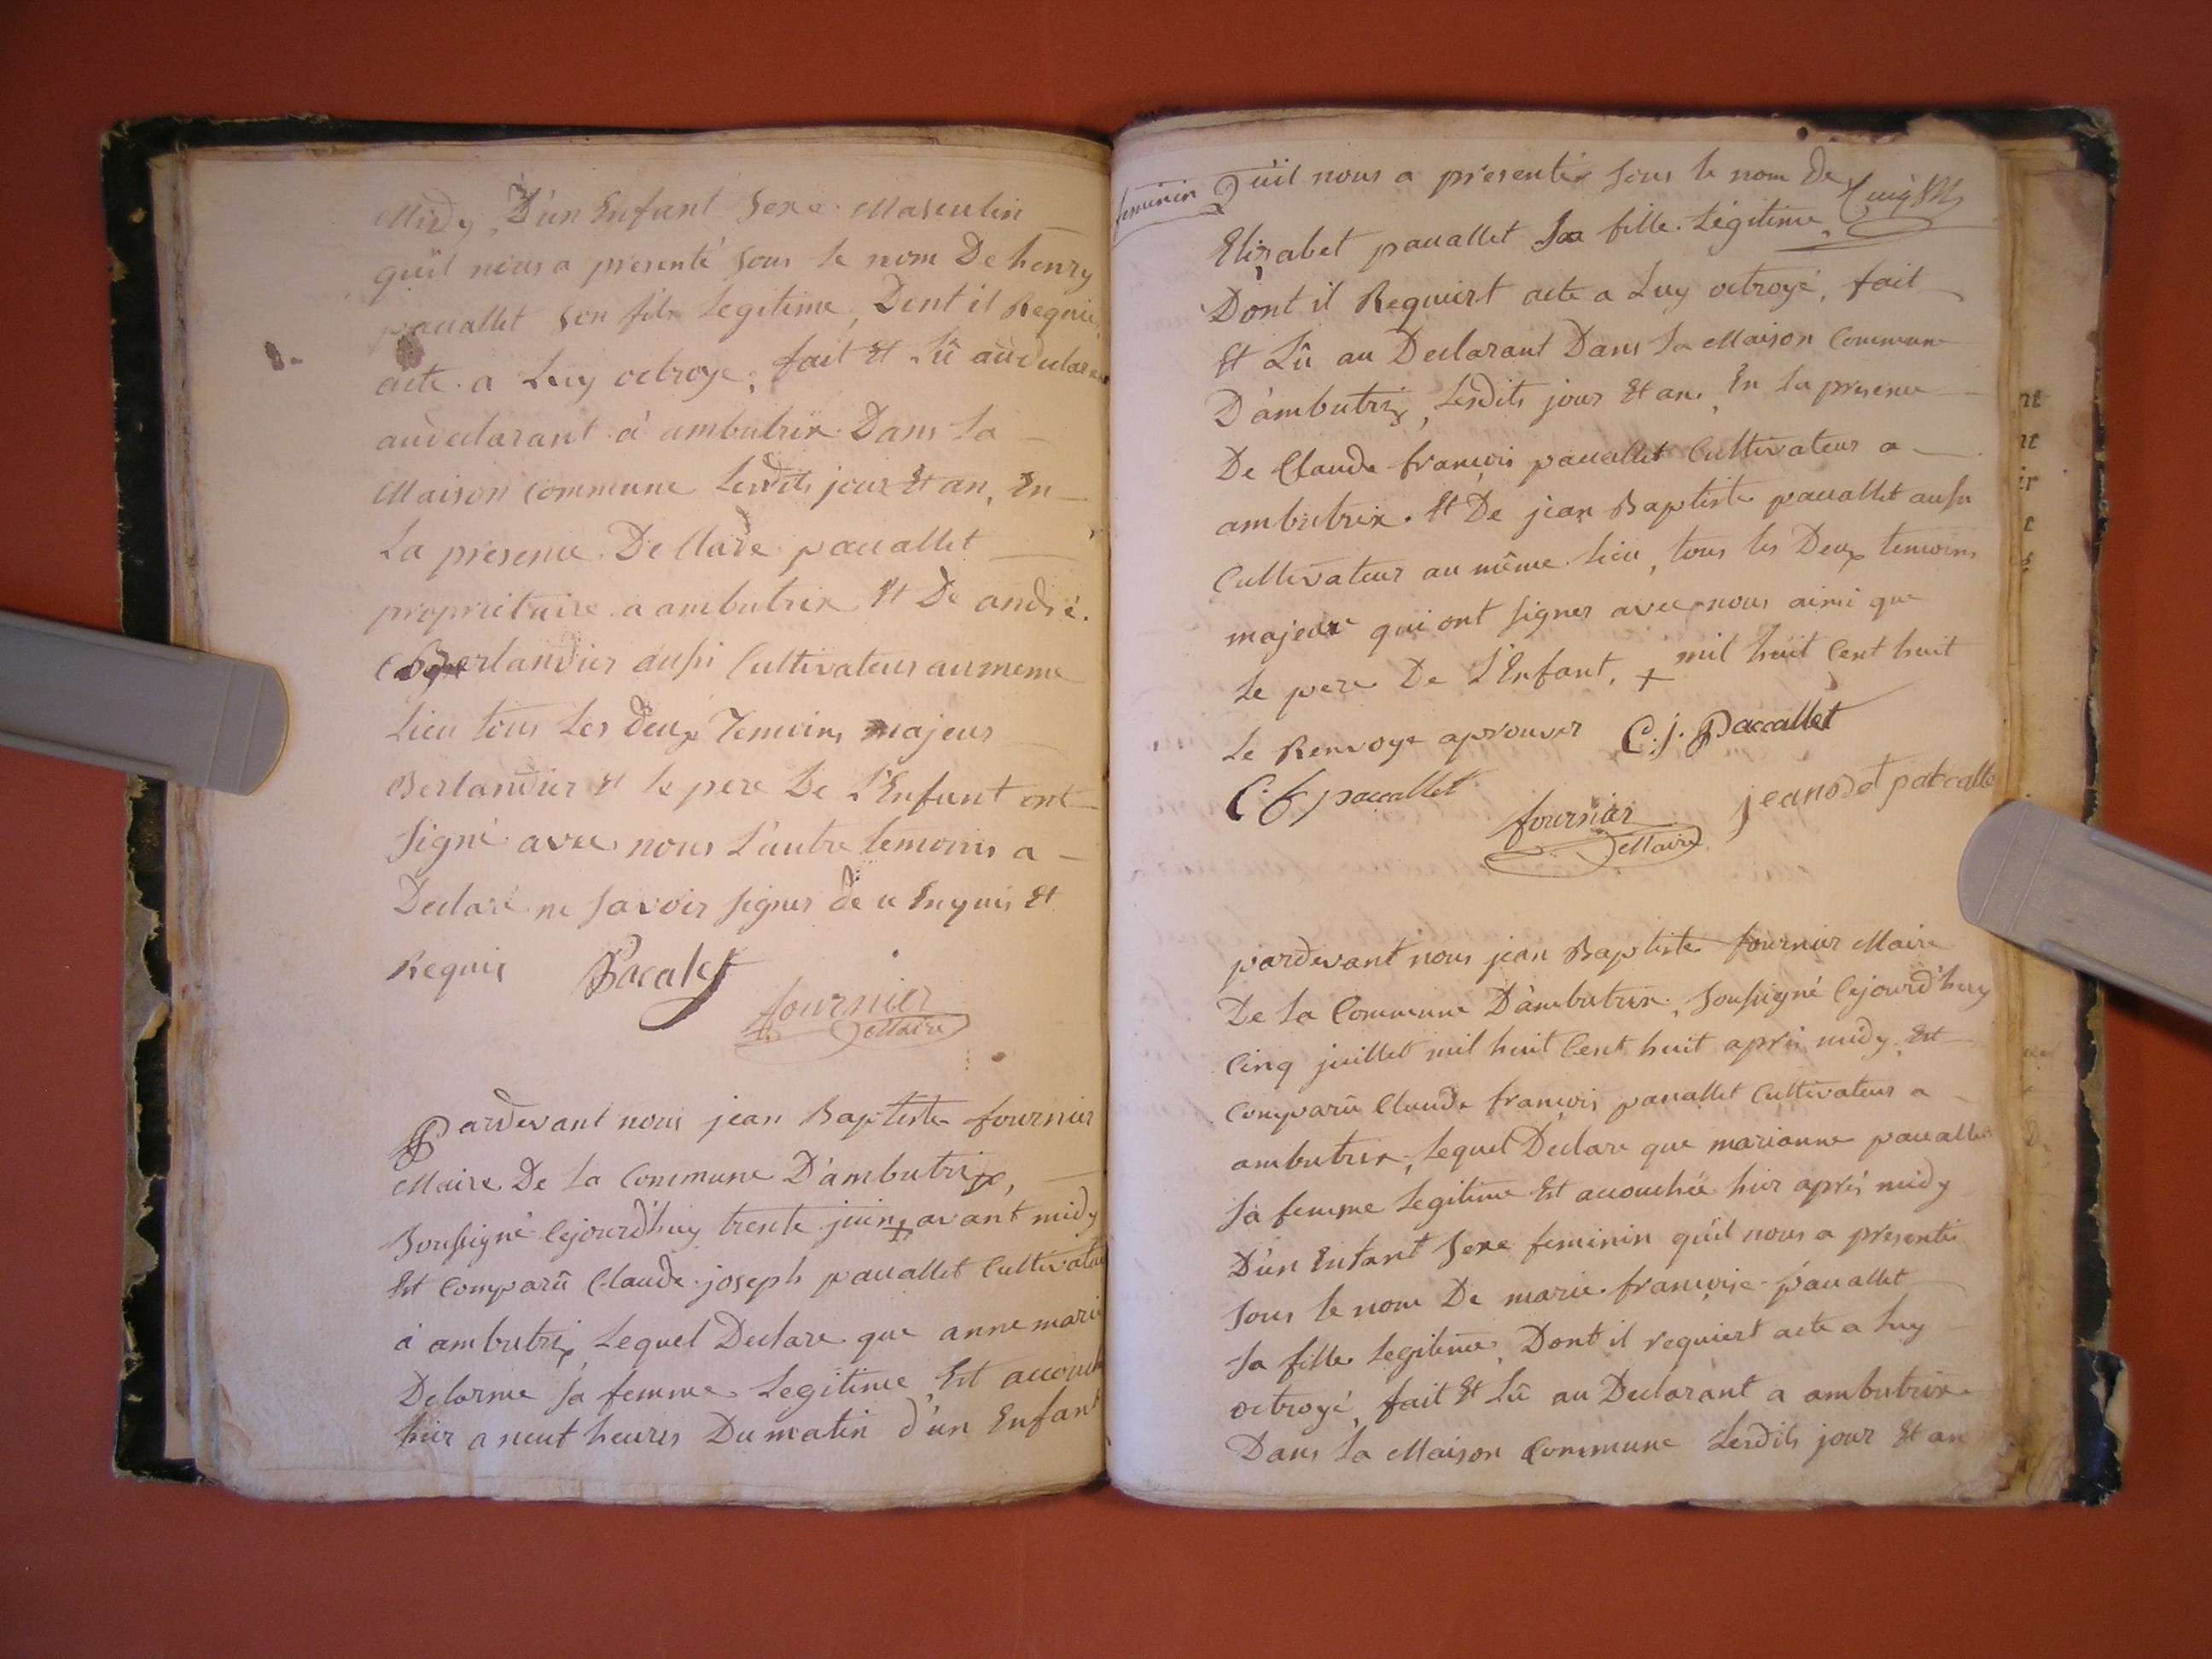 Midy, D'un Enfant Sexe Masculin
qu'il nous a presenté sous le nom De henry
pacallet son fils Legitime, Dont il Requi
acte a Luy octroye, fait Et Lû au declara
au declarant à ambutrix Dans la
Maison commune Lesdits jour Et an, En
La presence De Clade pacallet
propriétaire a ambutrix Et De andré
Berlandier aussi Cultivateur au meme
Lieu tous Les deux Temoins majeurs
Berlandier Et le pere De L'Enfant ont
signé avec nous L'autre temoins a
Declaré ne savoir signer de ce Enquis Et
Requis Pacalet
fournier
Maire
Pardevant nous jean Baptiste fournier
Maire De la Commune D'ambutrix,
Soussigné Cejourd'huy trente juin + avant midy
Est Comparû Claude joseph pacallet Cultivateu
à ambutrix Lequel Declare que anne marie
Delorme sa femme Legitime, Est accouch
hier a neuf heures Du matin d'un Enfant
feminin Qu'il nous a presenter sous le nom De
Elisabet pacallet sa fille Légitime,
Dont il Requiert acte a Luy octroyé, fait
Et Lû au Declarant Dans la Maison Commune
D'ambutrix, Lesdits jour Et an, En la presence
De Claude françois pacallet Cultivateur a
ambutrix. Et De jean Baptiste pacallet aussi
Cultivateur au même Lieu, tous les Deux temoins
majeur qui ont signer avec nous ainsi que
Le pere De L'Enfant, + mil huit Cent huit
Le Renvoye aprouver C. j. Paccallet
C. f paccallet jeanodet patcalle
fournier
Maire
pardevant nous jean Baptiste fournier Maire
De la Commune D'ambutrix, Soussigné Cejourd'huy
Cinq juillet mil huit Cent huit après midy Est
Comparû Claude françois pacallet Cultivateur a
ambutrix, Lequel Declare que marianne pacallet
sa femme Legitime Est accouchée hier après midy
D'un Enfant Sexe feminin qu'il nous a presenté
sous le nom De marie françoise pacallet
sa fille Legitime, Dont il requiert acte a Luy
octroyé, fait Et Lû au Declarant a ambutrix
Dans la Maison Commune Lesdits jour Et an